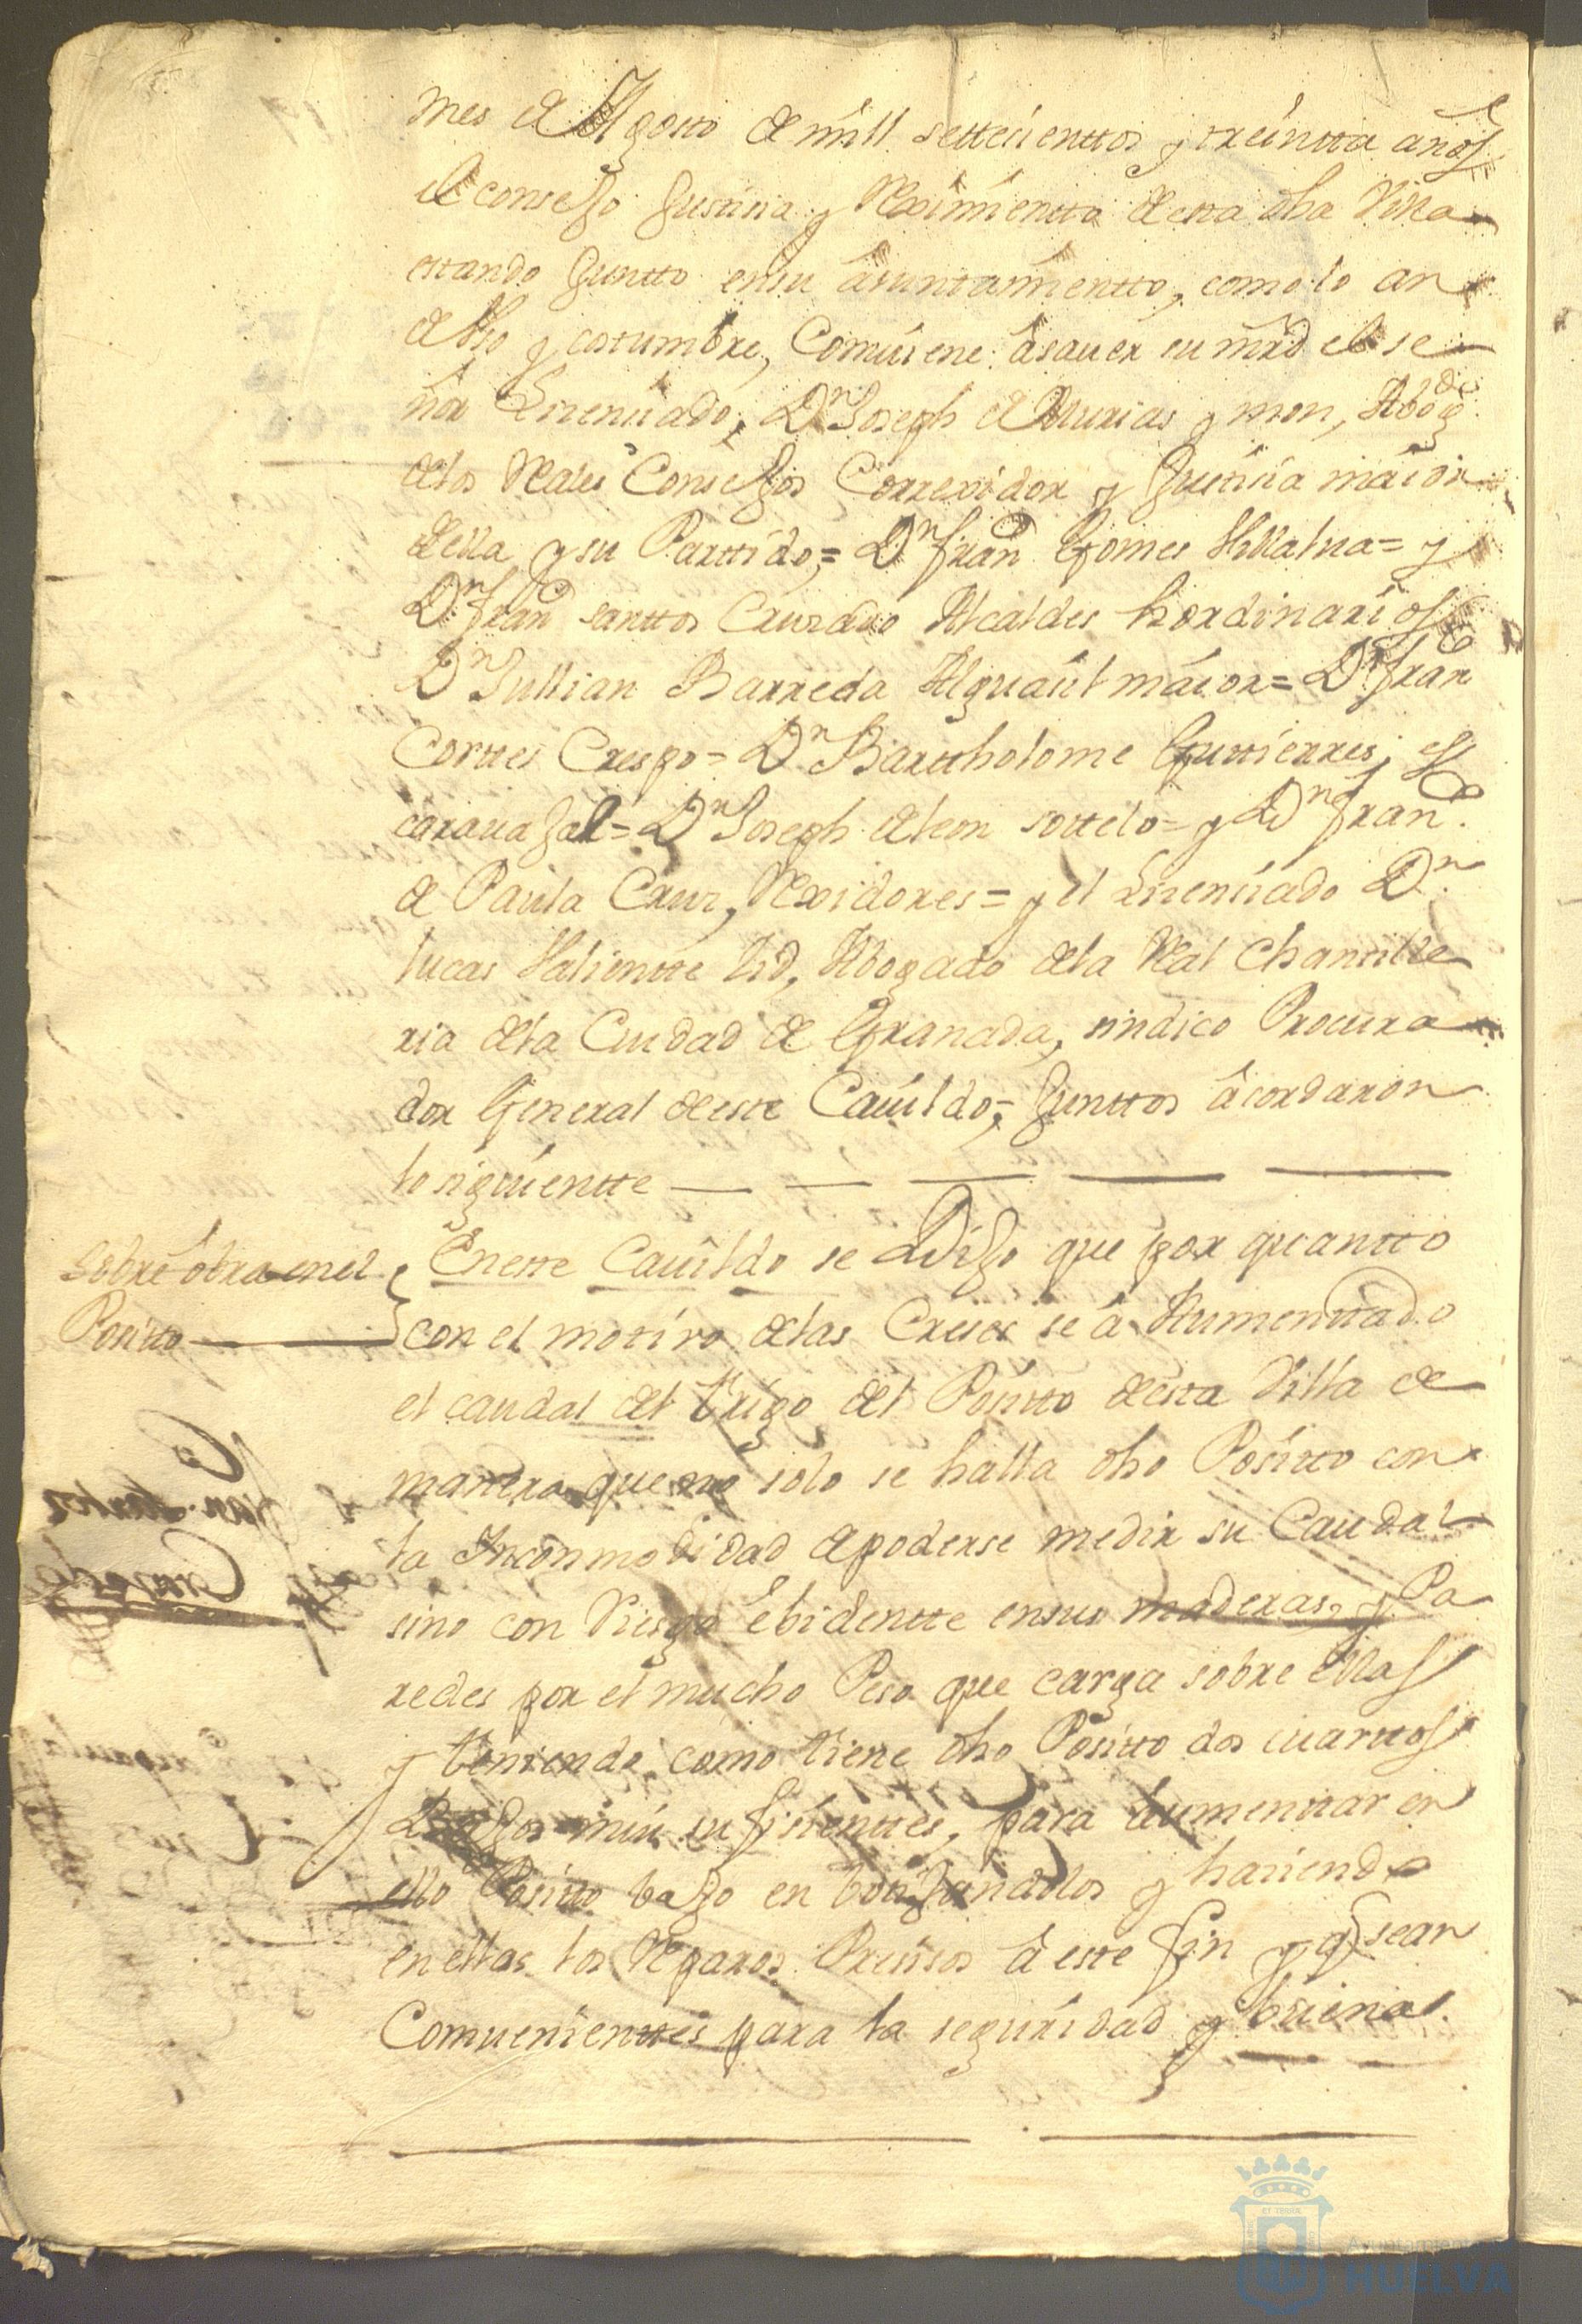 mes de Agosto de mill settecienttos y treintta años
el consejo Justicia y Reximientto desta dha Villa
estando Juntto en su aiuntamientto, como lo an
de Vso y costumbre, Combiene asauer su mrd el se
ñor Lizenciado, Dn Joseph de Murias y mon, Abogdo
de los Reales Consejos Correxidor y Justicia maior
della y su Parttido = Dn Franco Gomes Villalua = y
Dn Franco santtos Cruzado Alcaldes hordinarios
Dn Jullian Barreda Alguacil maior = Dn Franco
Corttes Crespo = Dn Barttholome Guttierres
carauajal = Dn Joseph de leon sottelo = y Dn Franco
de Paula Cruz, Rexidores = y el Lizenciado Dn
lucas Valientte Vid, Abogado de la Real Chancille
ria de la Ciudad de Granada, sindico Procura
dor General de este Cauildo = Junttos acordaron
lo siguientte
Sobre obra en el
Positto
En este Cauildo se Dijo que por quantto
con el motivo de las Creses se á Aumenttado
el caudal del trigo del Positto desta Villa de
manera que no solo se halla dho Positto con
la Incommodidad de poderse medir su Caudal
sino con Riesgo Ebidentte en sus maderas, y Pa
redes por el mucho Peso que carga sobre ellas
y teniendo como tiene dho Positto dos cuarttos
Bajos mui sufisienttes, para aumenttar en
ello Positto bajo en y haciendo
en ellas los Reparos Presisos á este fin y q sean
Comuenienttes para la seguridad y buena
Ayuntamiento
HUELVA